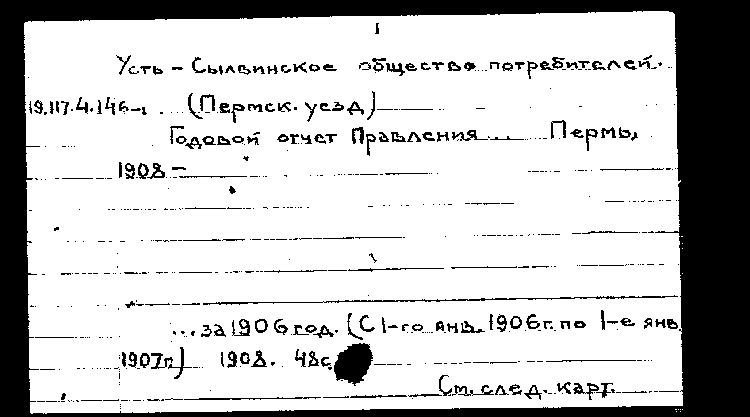 1
Усть - Сылвинское общество потребителей.
19.117.4.146-1 (Пермск. уезд)
Годовой отчет Правления... Пермь,
1908 -
...за 1906 год. (С 1-го янв. 1906 г. по 1-е янв
1907 г.) 1908. 48с
См. след. карт.